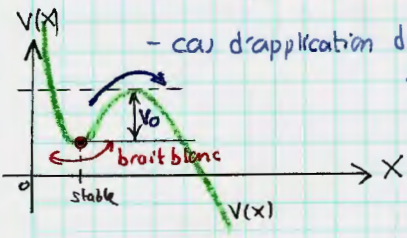 V(x)
- cas d'application d
V₀
bruit blanc
X
0
stable
V(x)